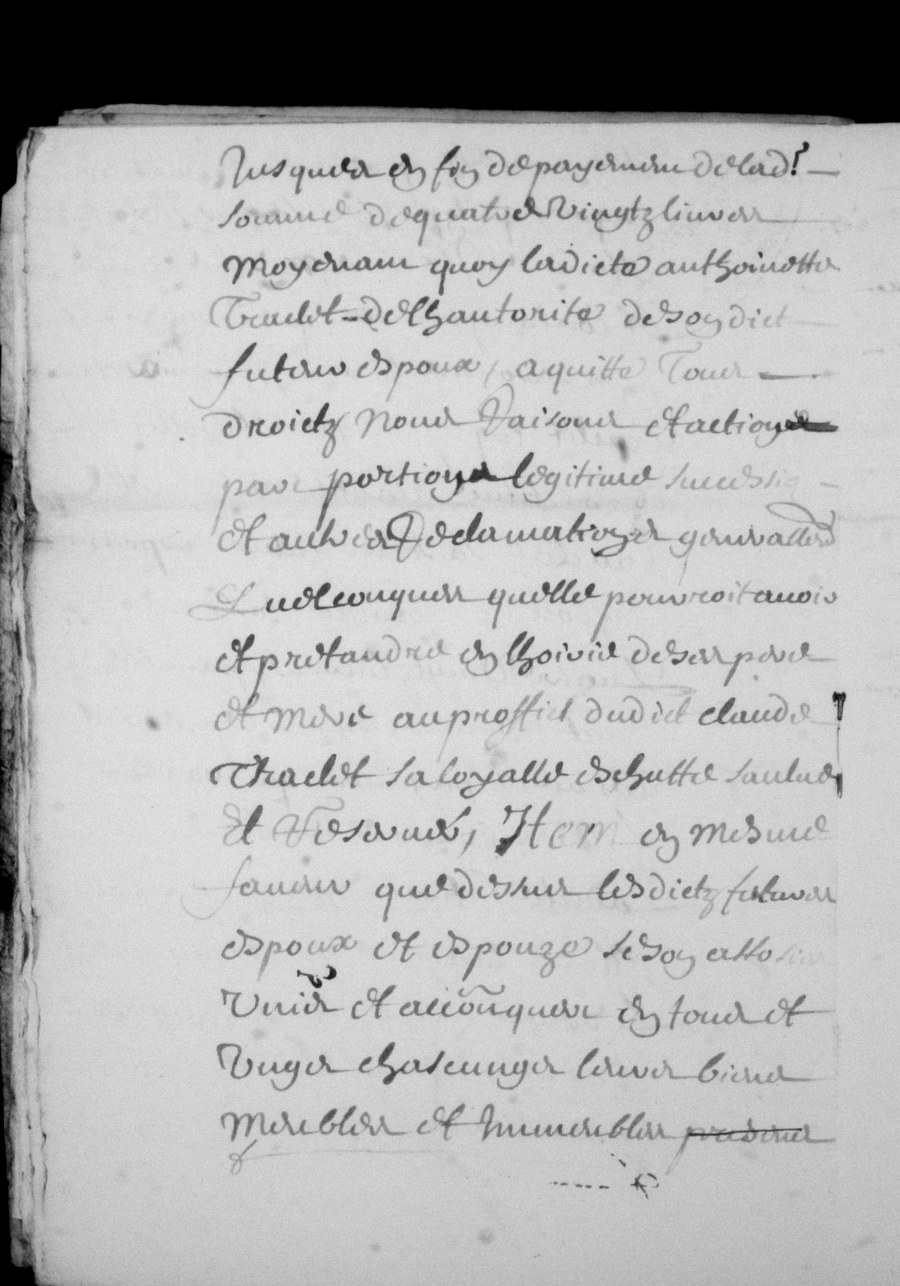 Jusques en fin de payemen de lad.e
somme de quatre vingtz livres
moyenant quoy ladicte anthoinette
Tradet de lhautorite de son dict
futeur espoux, a quitte tous
droictz noms raisons et actions
par portions legitime succession
et autres Reclamations generalles
Quelconques quelle pouvroit avoir
et pretandre en lhoirie de ses pere
et mere au proffict dudict claude
Tradet sa loyalle eschutte saulve
Et Reservés, Item en mesme
faveur que dessus lesdictz futeurs
espoux et espouze se son asso
Unis et accōnques en tous et
Ungs chascungs leurs biens
Meubles et Immeubles presens